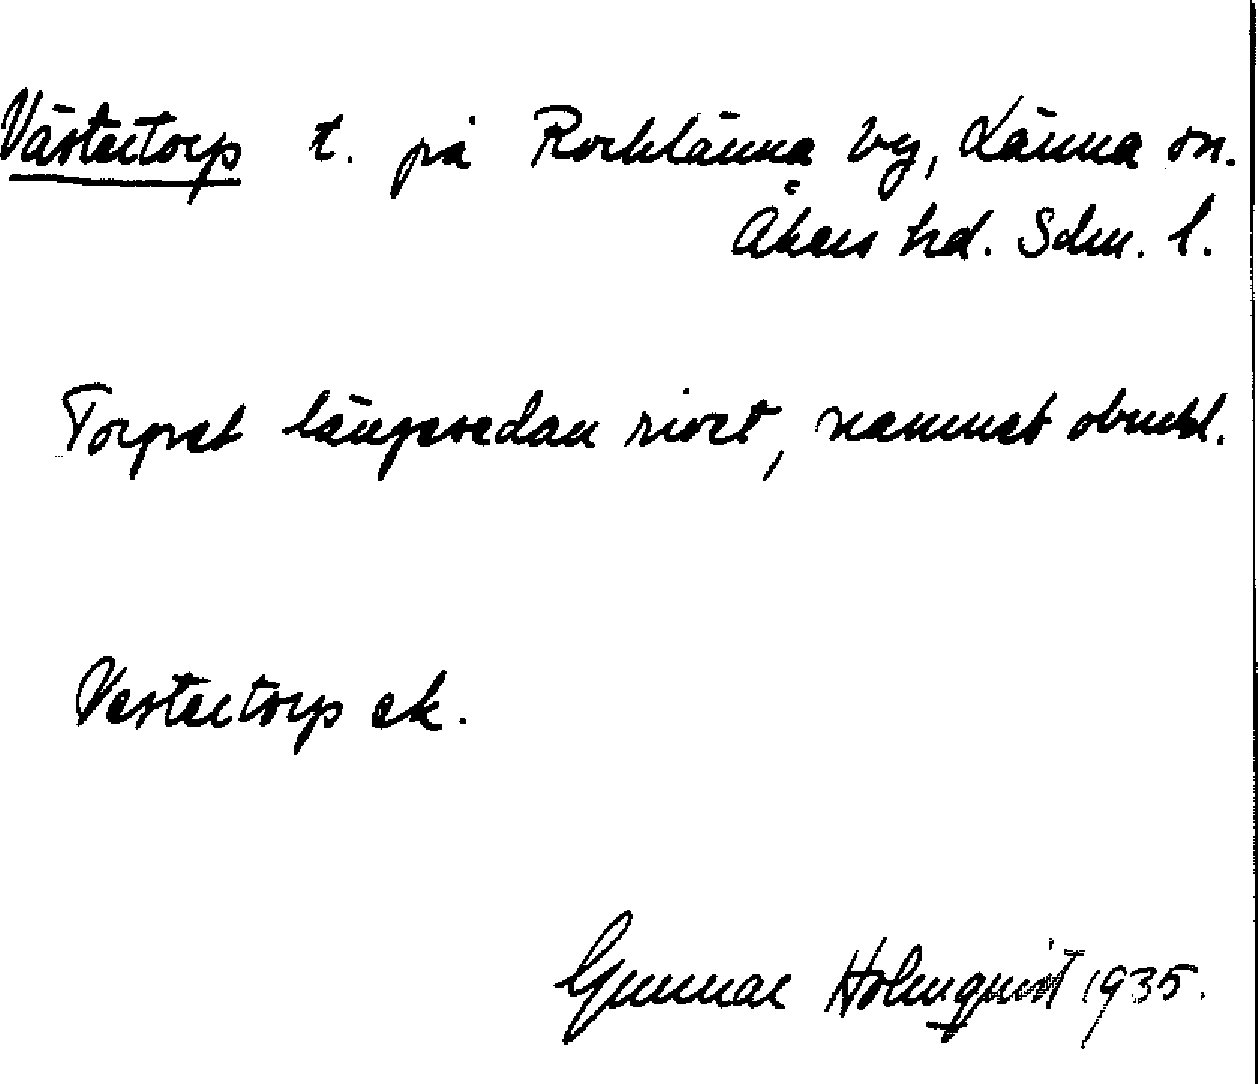 Västertorp t. på Rocklänna by, Länna sn.
Åkers hd. Sdm. l.
Torpet längesedan rivet, namnet obrukl.
Vestertorp ek.
Gunnar Holmqvist 1935.